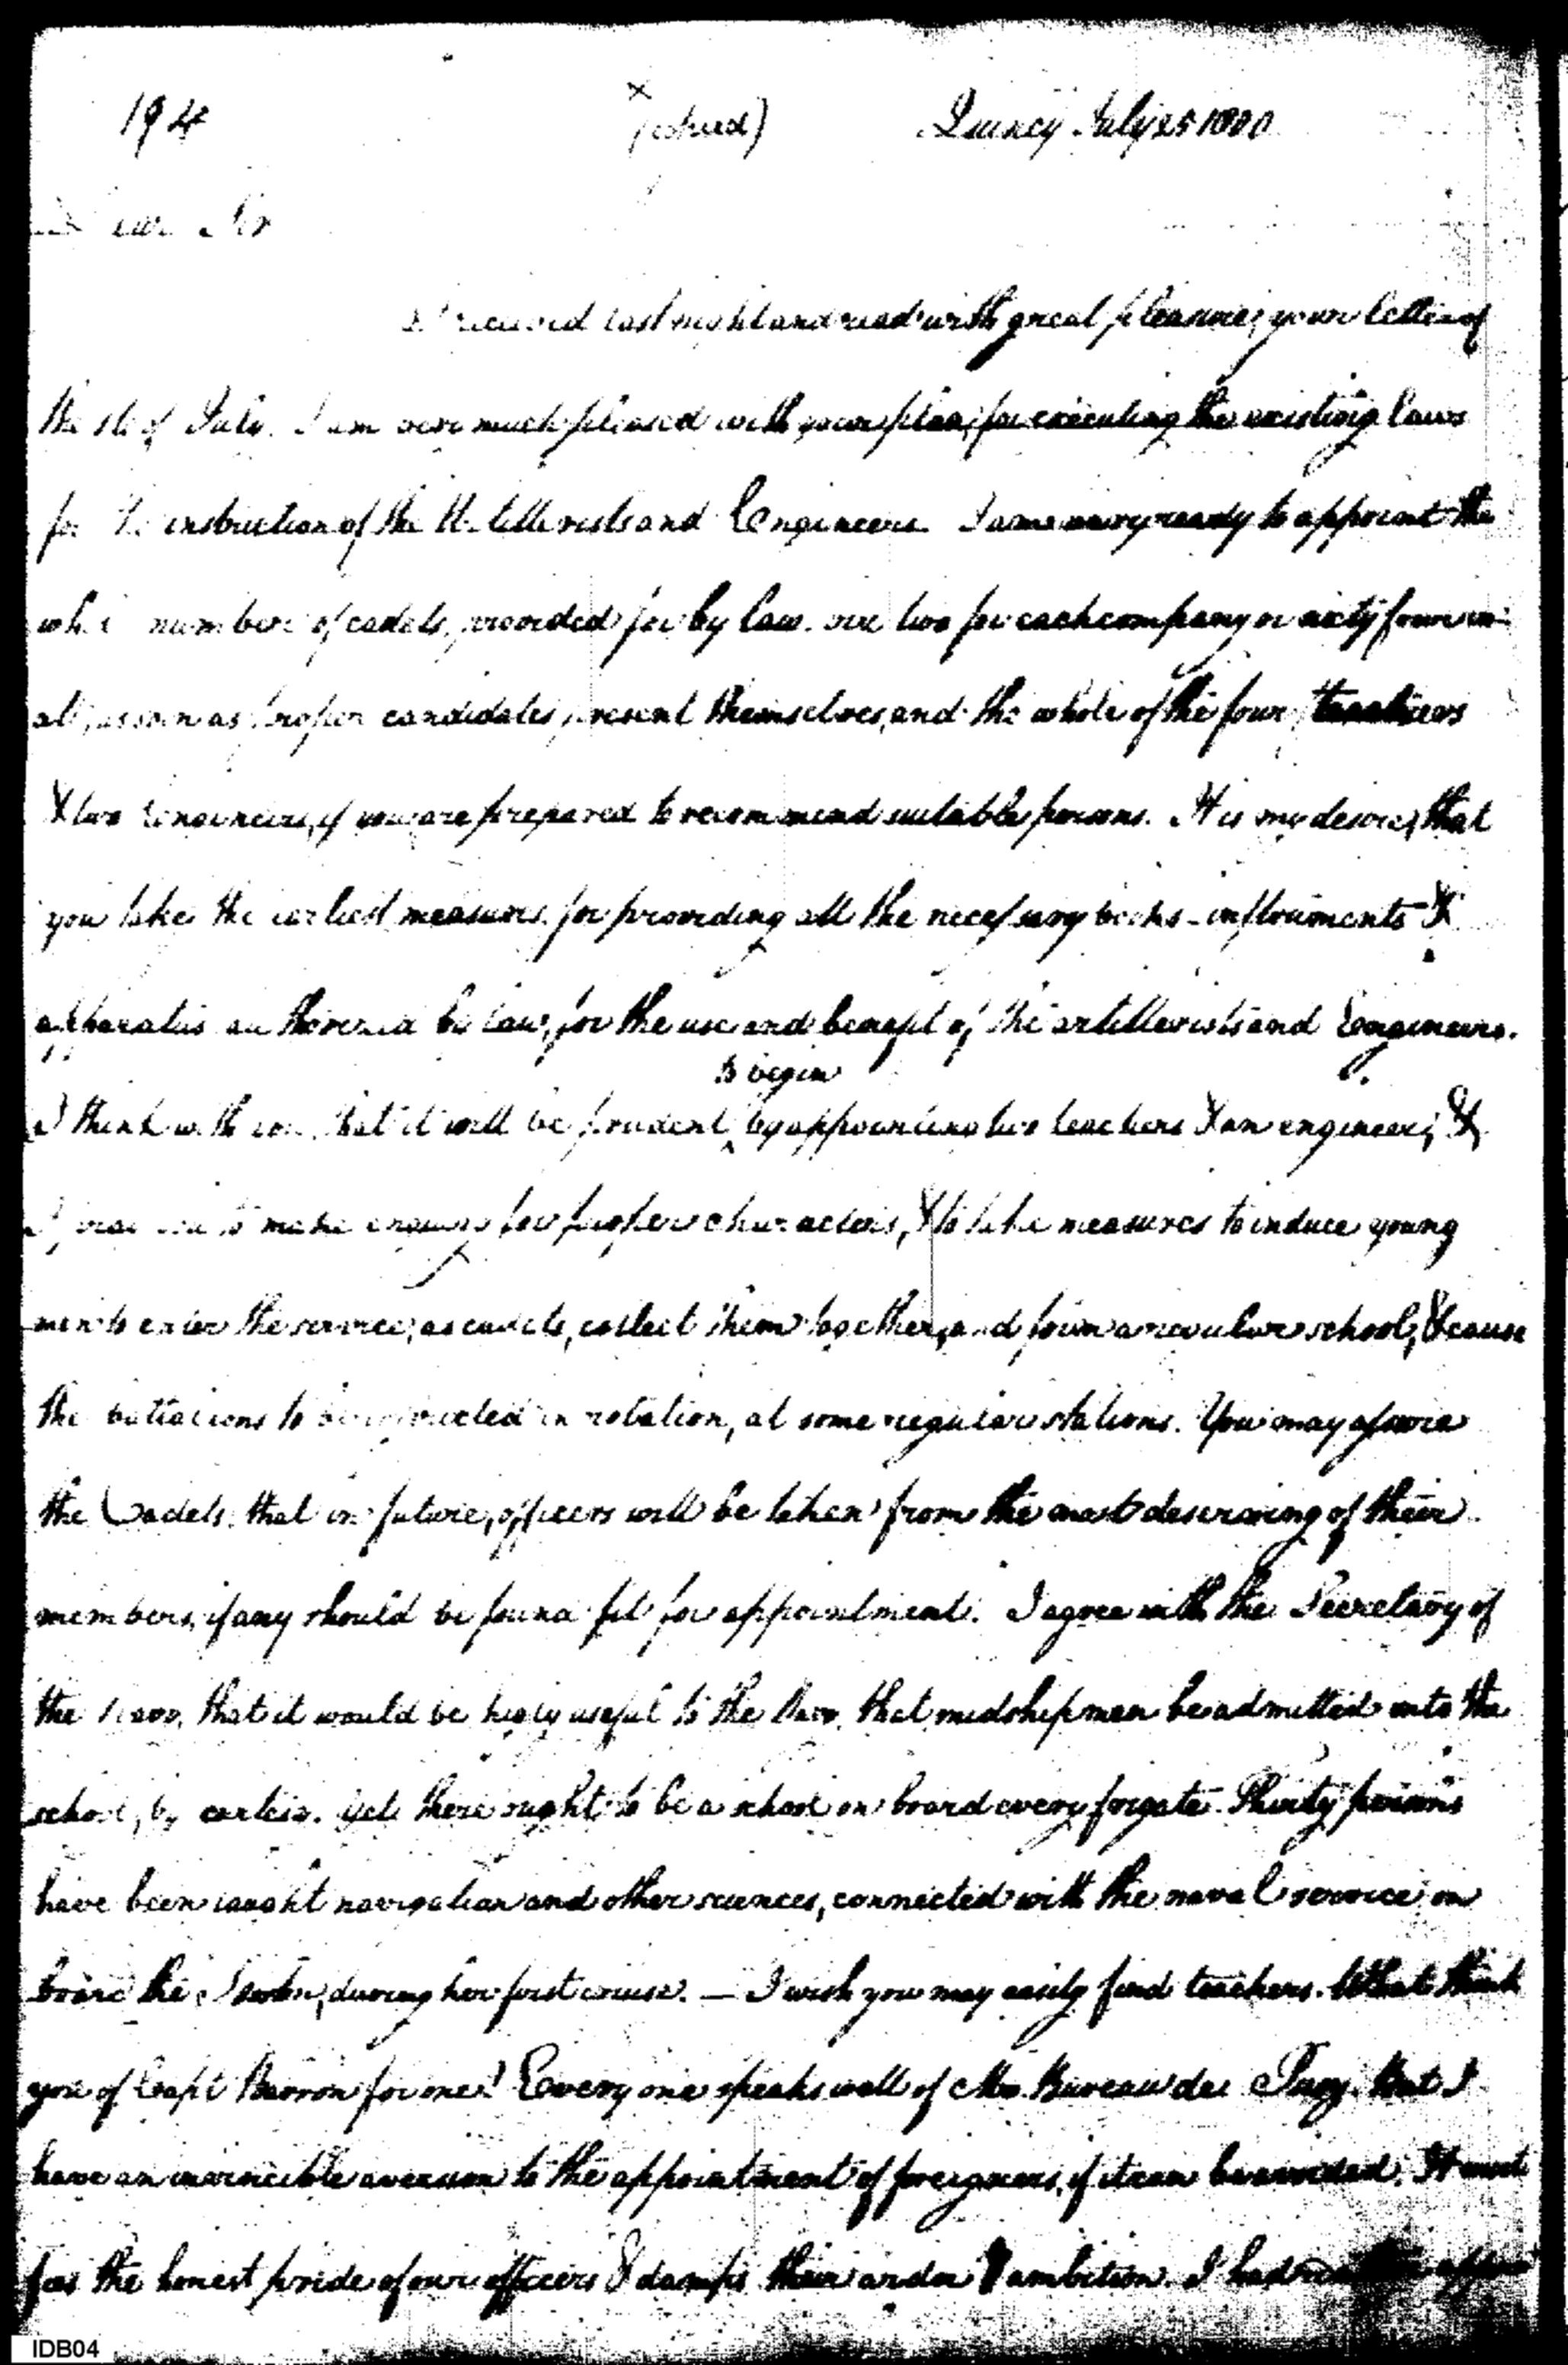 194
Quincy July 25 1800
Dear Sir
I received last night and read with great pleasure, your letter of
the of July. I am very much pleased with your plan, for executing the existing laws
for the instruction of the Artillerists and Engineers. I am very ready to appoint the
whole number of cadets, provided for by law. two for each company or sixty four in
all, as soon as proper candidates, present themselves, and the whole of the four teachers
& two Engineers, if you are prepared to recommend suitable persons. It is my desire, that
you take the earliest measures for providing all the necessary books - instruments &
apparatus authorized by law, for the use and benefit of the artillerists and Engineers.
to begin
I think with you that it will be prudent by appointing two teachers & an engineer; &
I pray you to make enquiry for proper characters, & to take measures to induce young
men to enter the service, as cadets, collect them together, and form a regular school, & cause
the battalions to be instructed in rotation, at some regular stations. You may assure
the Cadets. that in future, officers will be taken from the most deserving of their
members, if any should be found fit for appointment. I agree with the Secretary of
the navy, that it would be highly useful to the Navy, that midshipmen be admitted into the
school, by Yet there ought to be a school on board every frigate. Thirty persons
have been taught navigation and other sciences, connected with the naval service on
board the during her first cruise. — I wish you may easily find teachers. What think
you of Capt Barron for one? Every one speaks well of Mr. Bureau de Pusy. But I
have an invincible aversion to the appointment of foreigners, if it can be avoided. It
the honest pride of our officers & damps their ardor & ambition. I had
IDB04